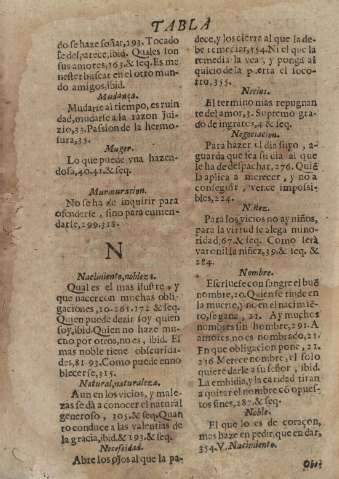 TABLA
do se haze soñar, 293. Tocado
se desparece, ibid. Quales son
sus amores, 263. & seq. Es me
nester buscar en el otro mun-
do amigos. ibid.
Mudança.
Mudarse al tiempo, es ruin
dad, mudarse a la razon Jui-
zio, 33. Passion de la hermo-
sura, 35.
Muger.
Lo que puede vna hazen-
dosa, 40. 41. & seq.
Murmuracion.
No se ha de inquirir para
ofenderse, sino para enmen-
darse, 299. 318.
N
Nacimiento, nobleza.
Qual es el mas ilustre, y
que nacer con muchas obli-
gaciones, 20. 261. 272 & seq.
Quien puede dezir soy quien
soy, ibid. Quien no haze mu-
cho por otros, no es, ibid. El
mas noble tiene obscurida-
des, 81. 93. Como puede enno
blecerse, 315.
Natural, naturaleza.
Aun en los vicios, y male-
zas se dà a conocer el natural
generoso, 205. & seq. Quan
to conduce a las valentias de
la gracia, ibid. & 193. & seq.
Necesidad.
Abre los ojos al que la pa-
dece, y los cierra al que la de-
be remediar, 354. Ni el que la
remedia la vea, y ponga al
quicio de la puerta el soco-
rro. 355.
Necios.
El termino mas repugnan
te del amor, 3. Supremo gra-
do de ingratos, 4. & seq.
Negociacion.
Para hazer el dia suyo, a-
guarda que sea su dia al que
le ha de despachar, 276. Quiē
la aplica a merecer, y no a
conseguir, vence imposi-
bles, 224.
Niñez.
Para los vicios no ay niños,
para la virtud se alega mino-
ridad, 67. & seq. Como serà
varonil la niñez, 39. & seq. &
284.
Nombre.
Escriuese con sangre el buē
nombre, 20. Quien se rinde en
la muerte, y no en el nacimiē-
to, se gana, 21. Ay muchos
nombres sin hombre, 291. A
amores, no es nombrado, 21.
En que obligacion pone, 21.
236 Merece nombre, el solo
quiere darle a su señor, ibid.
La embidia, y la caridad tiran
a quitar el nombre cō opues-
tos fines, 287. & seq.
Noble.
El que lo es de coraçon,
mas haze en pedir, que en dar,
354. V. Nacimiento.
Obe-